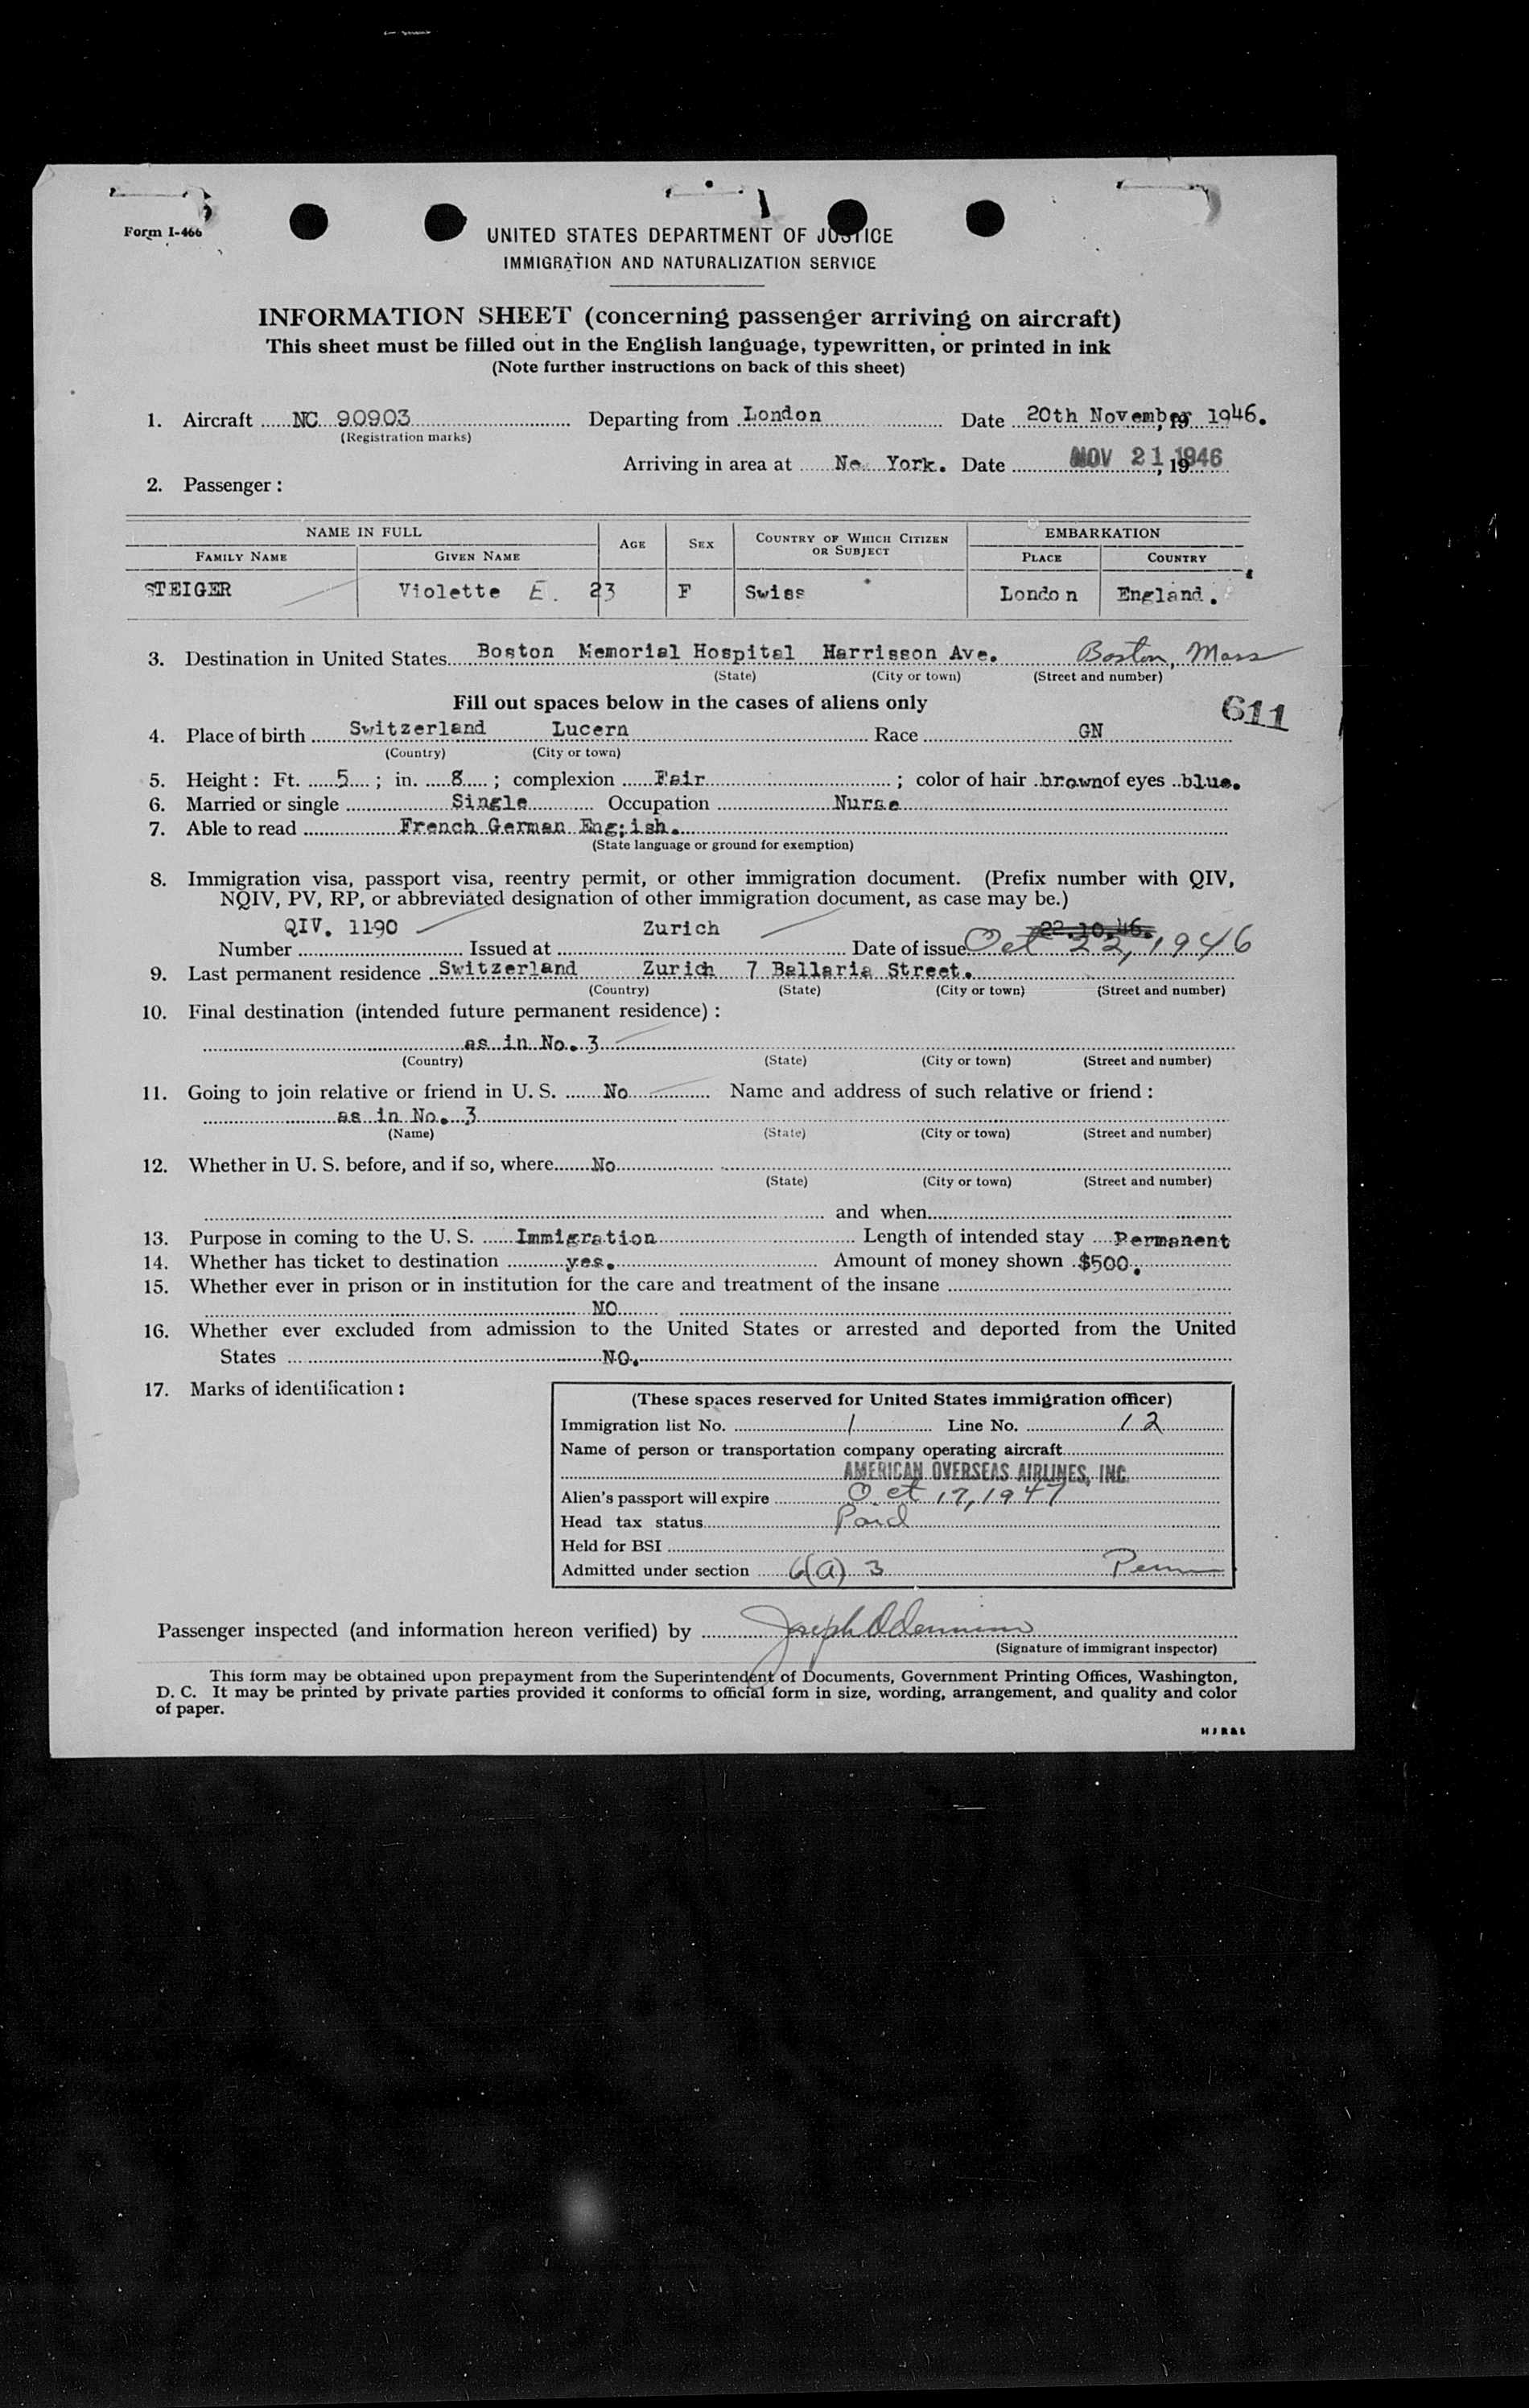 Form I-466
UNITED STATES DEPARTMENT OF JUSTICE
IMMIGRATION AND NATURALIZATION SERVICE
INFORMATION SHEET (concerning passenger arriving on aircraft)
This sheet must be filled out in the English language, typewritten, or printed in ink
(Note further instructions on back of this sheet)
1. Aircraft NC 90903 Departing from London Date 20th November, 19 1946.
(Registration marks)
Arriving in area at Ne York. Date NOV 21 1946, 19
2. Passenger:
NAME IN FULL AGE SEX COUNTRY OF WHICH CITIZEN OR SUBJECT EMBARKATION
FAMILY NAME GIVEN NAME PLACE COUNTRY
STEIGER Violette E. 23 F Swiss London England.
3. Destination in United States Boston Memorial Hospital Harrisson Ave. Boston, Mass
(State) (City or town) (Street and number)
Fill out spaces below in the cases of aliens only 611
4. Place of birth Switzerland Lucern Race GN
(Country) (City or town)
5. Height: Ft. 5; in. 8; complexion Fair; color of hair brown of eyes blue.
6. Married or single Single Occupation Nurse
7. Able to read French German Eng;ish.
(State language or ground for exemption)
8. Immigration visa, passport visa, reentry permit, or other immigration document. (Prefix number with QIV,
NQIV, PV, RP, or abbreviated designation of other immigration document, as case may be.)
QIV. 1190 Zurich 22.10.46.
Number Issued at Date of issue Oct 22, 1946
9. Last permanent residence Switzerland Zurich 7 Ballaria Street.
(Country) (State) (City or town) (Street and number)
10. Final destination (intended future permanent residence):
as in No. 3
(Country) (State) (City or town) (Street and number)
11. Going to join relative or friend in U. S. No Name and address of such relative or friend:
as in No. 3
(Name) (State) (City or town) (Street and number)
12. Whether in U. S. before, and if so, where No
(State) (City or town) (Street and number)
and when
13. Purpose in coming to the U. S. Immigration Length of intended stay Permanent
14. Whether has ticket to destination yes. Amount of money shown $500.
15. Whether ever in prison or in institution for the care and treatment of the insane
NO
16. Whether ever excluded from admission to the United States or arrested and deported from the United
States NO.
17. Marks of identification:
(These spaces reserved for United States immigration officer)
Immigration list No. 1 Line No. 12
Name of person or transportation company operating aircraft
AMERICAN OVERSEAS AIRLINES, INC.
Alien's passport will expire Oct 17, 1947
Head tax status Paid
Held for BSI
Admitted under section 6(a) 3 Perm
Passenger inspected (and information hereon verified) by Joseph
(Signature of immigrant inspector)
This form may be obtained upon prepayment from the Superintendent of Documents, Government Printing Offices, Washington,
D. C. It may be printed by private parties provided it conforms to official form in size, wording, arrangement, and quality and color
of paper.